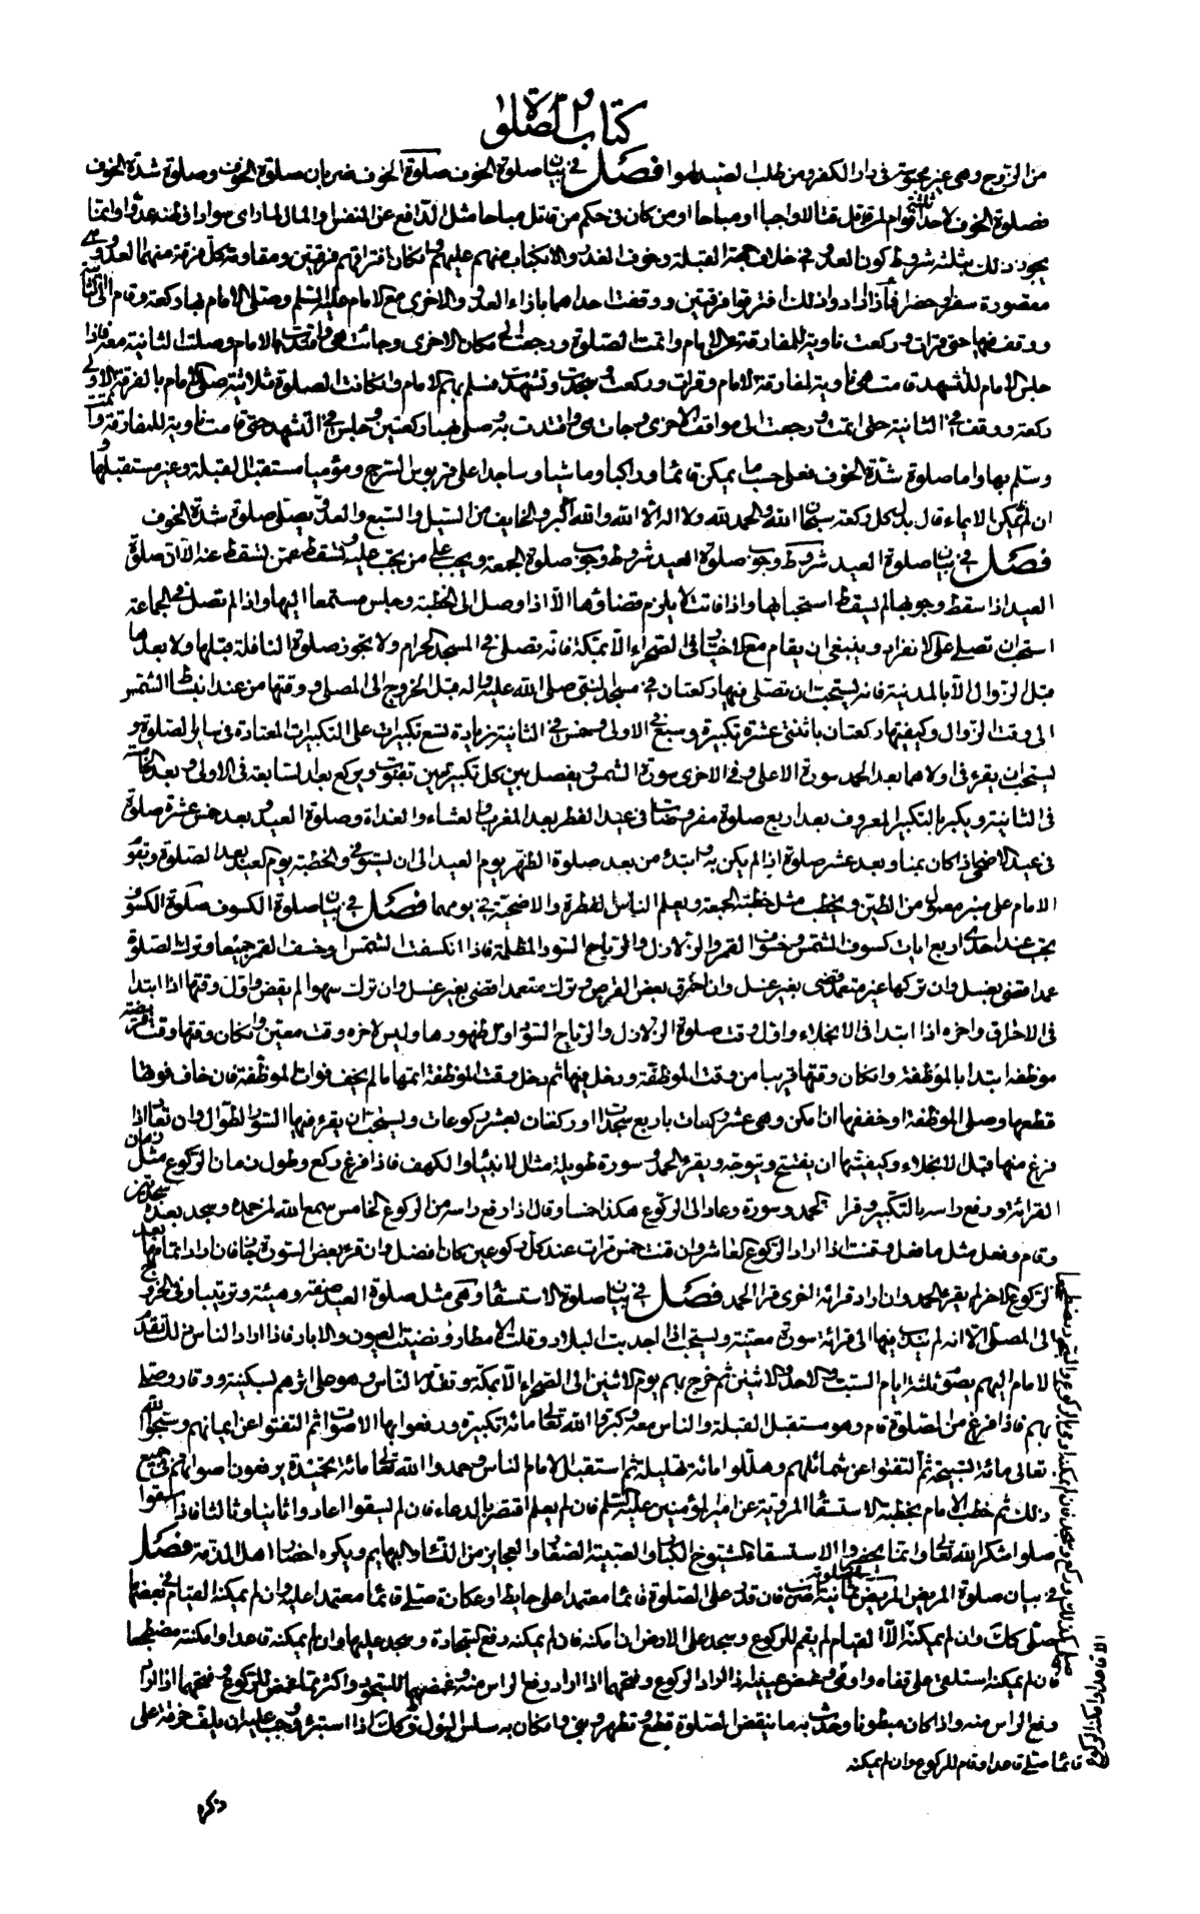 كتاب الصلوة
من الزوج وهى غير محبوسة فى دار الكفر ومن طلب الصيد لهوا فصل فى بيان صلوة الخوف صلوة الخوف ضربان صلوة الخوف وصلوة شدة الخوف
فصلوة الخوف لاحد ثلثة اقوام لمن قاتل قتالا واجبا او مباحا او من كان فى حكم من قاتل مباحا مثل الدافع عن النفس او المال لما راى سوادا فظنه عدوا وانما
يجوز ذلك بثلثة شروط كون العدو فى خلاف جهة القبلة وخوف الغدر والانكباب منهم عليهم وامكان افتراقهم فرقتين ومقاومة كل فرقة منهما العدو وهى
مقصورة سفرا وحضرا فاذا ارادوا ذلك افترقوا فرقتين ووقفت احداهما بازاء العدو والاخرى مع الامام عليه السلم وصلى الامام بها ركعة وقام الى الثانية
ووقف فيها حتى قرات وركعت ناوية للمفارقة عن الامام واتمت الصلوة ورجعت الى مكان الاخرى وجائت هى واقتدت بالامام وصلت الثانية معه فاذا
جلس الامام للتشهد قامت هى ناوية لمفارقة الامام وقرات وركعت وسجدت وتشهدت فسلم بهم الامام وان كانت الصلوة ثلاثية صلى الامام بالفرقة الاولى
ركعة ووقف فى الثانية حتى اتمت ورجعت الى مواقف الاخرى وجات هى واقتدت به وصلى بها ركعتين وجلس فى التشهد حتى قامت ناوية للمفارقة واتمت
وسلم بها واما صلوة شدة الخوف فعلى حسب ما يمكن قائما وراكبا وماشيا وساجدا على قربوس السرج ومؤميا مستقبل القبلة وغير مستقبلها
ان لم يمكن الايماء قال بدل كل ركعة سبحان الله والحمد لله ولا اله الا الله والله اكبر والخايف من السيل والسبع والعدو يصلى صلوة شدة الخوف
فصل فى بيان صلوة العيد شروط وجوب صلوة العيد شروط وجوب صلوة الجمعة ويجب على من يجب عليه وتسقط عمن تسقط عنه الا ان صلوة
العيد اذا سقط وجوبها لم يسقط استحبابها واذا فاتت لا يلزم قضاؤها الا اذا وصل الى الخطبة وجلس مستمعا اليها واذا لم تصل فى الجماعة
استحب ان تصلى على الانفراد وينبغى ان يقام مع الاختيار فى الصحراء الا بمكة فانه تصلى فى المسجد الحرام ولا يجوز صلوة النافلة قبلها ولا بعدها
قبل الزوال الا بالمدينة فانه يستحب ان تصلى فيها ركعتان فى مسجد النبى صلى الله عليه واله قبل الخروج الى المصلى ووقتها من عند انبساط الشمس
الى وقت الزوال وكيفيتها ركعتان باثنتى عشرة تكبيرة سبع فى الاولى وخمس فى الثانية بزيادة تسع تكبيرات على التكبيرات المعتادة فى ساير الصلوة و
يستحب ان يقرء فى اولاهما بعد الحمد سورة الاعلى وفى الاخرى سورة الشمس ويفصل بين كل تكبيرتين بقنوت ويركع بعد السابعة فى الاولى وبعد الخامسة
فى الثانية ويكبر بالتكبير المعروف بعد اربع صلوة مفروضات فى عيد الفطر بعد المغرب والعشاء والغداة وصلوة العيد وبعد خمس عشرة صلوة
فى عيد الاضحى اذا كان بمنا وبعد عشر صلوة اذا لم يكن به وابتدء من بعد صلوة الظهر يوم العيد الى ان يستوفى والخطبة يوم العيد بعد الصلوة ويقوم
الامام على منبر معمول من الطين ويخطب مثل خطبة الجمعة ويعلم الناس الفطرة والاضحية فى يومهما فصل فى بيان صلوة الكسوف صلوة الكسوف
يجب عند احدى اربع ايات كسوف الشمس وخسوف القمر والزلازل والرياح السود المظلمة فاذا انكسفت الشمس او خسف القمر جميعا وترك الصلوة
عمدا قضى بغسل وان تركها غير متعمد قضى بغير غسل وان احترق بعض القرص وترك متعمدا قضى بغير غسل وان ترك سهوا لم يقض واول وقتها اذا ابتدا
فى الاحتراق واخره اذا ابتدا فى الانجلاء واول وقت صلوة الزلازل والرياح السود اول ظهورها وليس لاخره وقت معين وان كان وقتها وقت فريضة
موظفة ابتدا بالموظفة وان كان وقتها قريبا من وقت الموظفة ودخل فيها ثم دخل وقت الموظفة اتمها ما لم يخف فوات الموظفة فان خاف فوتها
قطعها وصلى الموظفة او خففها ان امكن وهى عشر ركعات باربع سجدات او ركعتان بعشر ركوعات ويستحب ان يقرء فيها السور الطوال وان
فرغ منها قبل الانجلاء وكيفيتها ان يفتتح ويتوجه ويقرء الحمد وسورة طويلة مثل الانبياء او الكهف فاذا فرغ ركع وطول زمان الركوع مثل زمان
القرائة ورفع راسه بالتكبير وقرا الحمد وسورة وعاد الى الركوع هكذا خمسا وقال اذا رفع راسه من الركوع الخامس سمع الله لمن حمده وسجد بعده سجدتين
وقام وفعل مثل ما فعل وقنت اذا اراد الركوع العاشر وان قنت خمس مرات عند كل ركوعين كان افضل وان قرء بعض السورة جاز فان اراد اتمامها بعد
الركوع الاخر لم يقرء الحمد وان اراد قرائة اخرى قرا الحمد فصل فى بيان صلوة الاستسقاء وهى مثل صلوة العيد صفة وهيئة وترتيبا وفى الخروج
الى المصلى الا انه لم يتعين فيها الى قرائة سورة معينة ويستحب اذا اجدبت البلاد وقلت الامطار ونضبت العيون والابار فاذا اراد الناس ذلك تقدم
الامام اليهم بصوم ثلثة ايام السبت والاحد والاثنين ثم خرج بهم يوم الاثنين الى الصحراء الا بمكة وتقدم الناس وهو على اثرهم بسكينة ووقار وصلى
بهم فاذا فرغ من الصلوة قام وهو مستقبل القبلة والناس معه وكبروا الله تعالى مائة تكبيرة ورفعوا بها الاصوات ثم التفتوا عن ايمانهم وسبحوا الله
تعالى مائة تسبيحة ثم التفتوا عن شمائلهم وهللوا مائة تهليلة ثم استقبل الامام الناس وحمدوا الله تعالى مائة تحميدة يرفعون اصواتهم فى جميع
ذلك ثم خطب الامام بخطبة الاستسقاء المروية عن امير المؤمنين عليه السلم فان لم يعلم اقتصر بالدعاء فان لم يسقوا اعادوا ثانيا وثالثا فاذا سقوا
صلوا شكرا لله تعالى وانما يحضر الاستسقاء الشيوخ الكبار والصبية الصغار والعجايز من النساء والبهايم ويكره احضار اهل الذمة فصل
فى بيان صلوة المريض المريض ثمانية اضرب فان قدر على الصلوة قائما معتمدا على حايط او عكازة صلى قائما معتمدا عليه وان لم يمكنه القيام فى بعضها
صلى كذلك وان لم يمكنه الا القيام لم يقم للركوع وسجد على الارض ان امكنه فان لم يمكنه رفع السجادة وسجد عليها وان لم يمكنه قاعدا وامكنه مضطجعا
فان لم يمكنه استلقى على قفاه واومى وغمض عينيه اذا اراد الركوع وفتحهما اذا اراد رفع الراس منه وغمضهما للسجود اكثر مما غمض للركوع وفتحهما اذا اراد
رفع الراس منه واذا كان مبطونا وحدث به ما ينقض الصلوة قطع وتطهر وبنى وان كان به سلس البول فكذلك اذا استبرء ووجب عليه ان يلف خرقة على
قائما صلى قاعدا وقام للركوع وان لم يمكنه
الا قاعدا وامكنه الركوع
ذكره